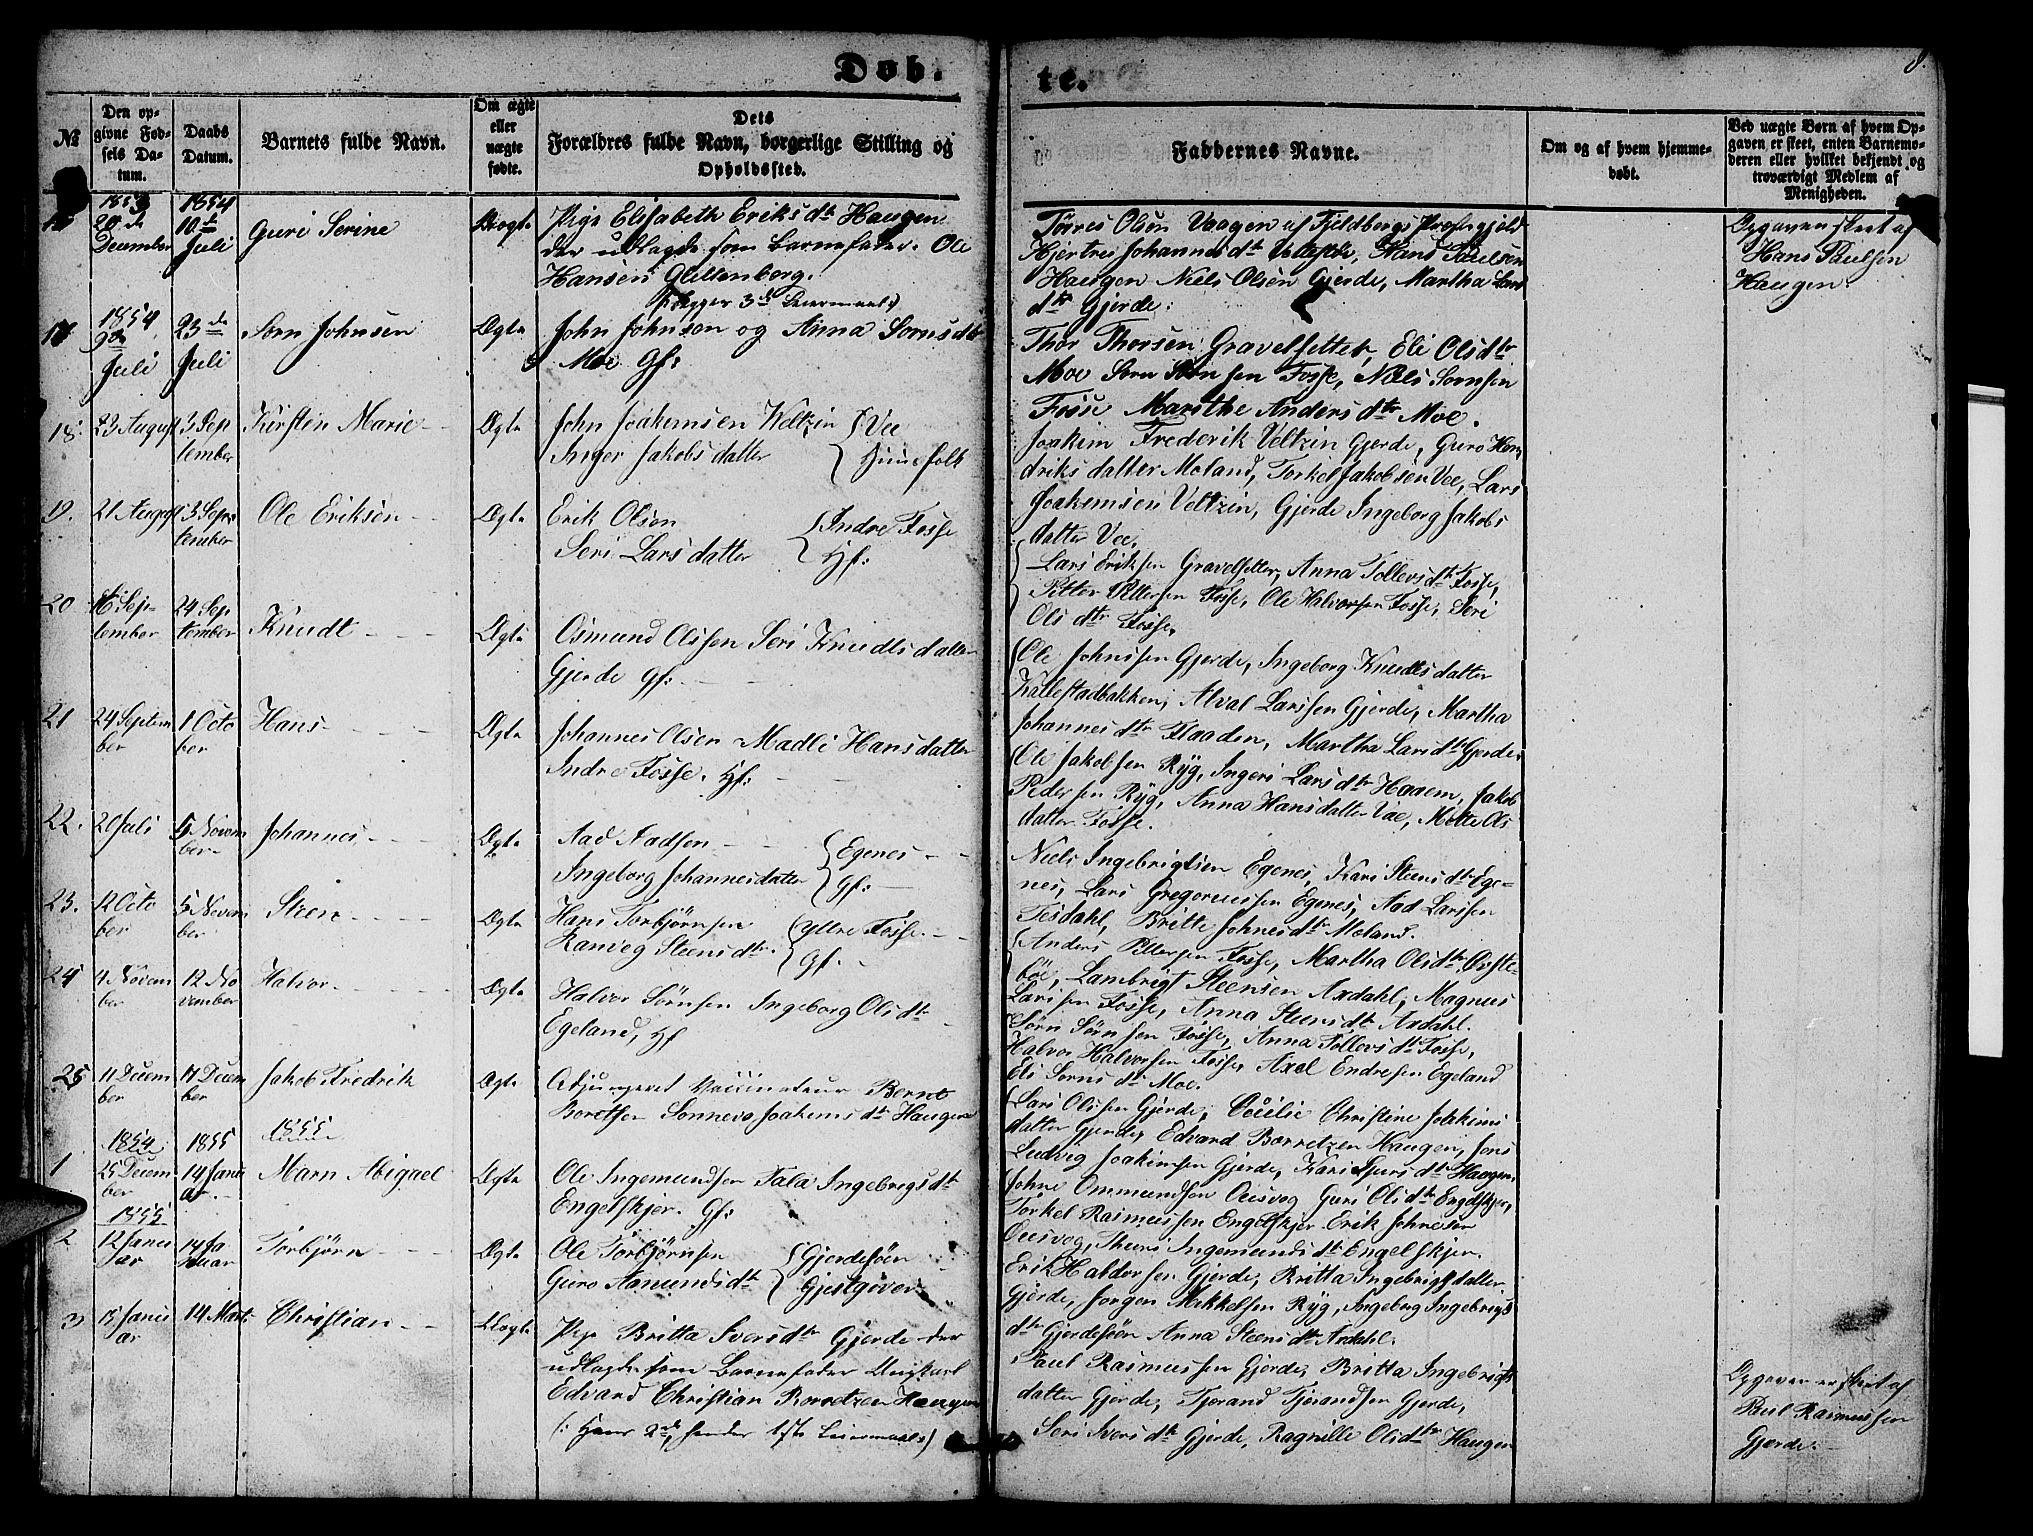 Døb.
te.
8.
№
Den op-
givne Fød-
sels Da-
tum.
Daabs
Datum.
Barnets fulde Navn.
Om ægte
eller
uægte
fødte.
Dets
Forældres fulde Navn, borgerlige Stilling og
Opholdssted.
Faddernes Navne.
Om og af hvem hjemme-
døbt.
Ved uægte Børn af hvem Op-
gaven er skeet, enten Barnemo-
deren eller hvilket bekjendt og
troværdigt Medlem af
Menigheden.
1853
20de
December
1854
10de
Juli
Guri Serine
Uægte
Pige Elisabeth Eriksdtr Haugen
der udlagde som Barnefader Ole
Hansen Gullenborg.
begges 3de Leiermaal
Tørres Olsen Vaagen af Fjeldbergs Præstegjeld
Hjertrei Johannesdtr Hans Paulsen
Haugen Niels Olsen Gjerde, Martha Lars
dtr Gjerde.
Opgaven skeet af
Hans Paulsen
Haugen
17
1854
9de
Juli
23de
Juli
Sørn Johnsen
Ægte
John Johnsen og Anna Sørnsdtr
Moe Gf:
Thor Thorsen Gravelsetter, Eli Olsdtr
Moe Sørn Sørnsen Fosse, Niels Sørnsen
Fosse Marthe Andersdtr Moe.
18
23 August
3 Sep
tember
Kirsten Marie
Ægte
John Joakemsen Weltzin
Inger Jakobsdatter
Vee
Huusfolk
Joakim Frederik Veltzin Gjerde, Guro Hen
driksdatter Moland, Torkel Jakobsen Vee, Lars
Joakemsen Veltzin, Gjerde Ingeborg Jakobs
datter Vee.
19.
21 August
3 Sep
tember
Ole Eriksen
Ægte
Erik Olson
Seri Larsdatter
Indre Fosse
Hf:
Lars Eriksen Gravelsetter, Anna Tollevsdtr Fosse,
Petter Pettersen Fosse, Ole Halvorsen Fosse, Seri
Olsdtr Fosse.
20
16 Sep-
tember
24 Sep
tember
Knudt
Ægte
Osmund Olssen Seri Knudtsdatter
Gjerde Gf:
Ole Johnssen Gjerde, Ingeborg Knudtsdatter
Kallestadbakken, Alval Larssen Gjerde, Martha
Johannesdtr Flaaden, Martha Larsdtr Gjerde.
21
24 Septem
ber
1 Octo
ber
Hans
Ægte
Johannes Olsen Madli Hansdatter
Indre Fosse. Hf:
Ole Jakobsen Ryg, Ingeri Larsdtr Haaem, Jakob
Pedersen Ryg, Anna Hansdatter Vae, Mette Ols
datter Fosse.
22.
20 Juli
5 Novem
ber
Johannes
Ægte
Aad Aadsen
Ingeborg Johannesdatter
Egenes
Gf:
Niels Ingebrigtsen Egenes, Kari Steensdtr Ege-
nes, Lars Gregoriussen Egenes, Aad Larssen
Tesdahl, Britte Johnesdtr Moland.
23.
12 Octo
ber
5 Novem
ber
Steen
Ægte
Hans Torbjørnsen
Ranveg Steensdtr
Ytre Fosse
Gf.
Anders Pettersen Fosse, Martha Olsdtr Øvste-
bøe, Lambrigt Steensen Axdahl, Magnus
Larssen Fosse, Anna Steensdtr Axdahl.
24
4 Novem
ber
12 No
vember
Halvor
Ægte
Halvor Sørnsen Ingeborg Olsdtr
Egeland, Hf
Sørn Sørnsen Fosse, Anna Tollevsdtr Fosse,
Halvor Halvorsen Fosse, Axel Endresen Egeland
Eli Sørnsdtr Moe.
25
11 Decem
ber
17 Decem
ber
Jakob Fredrik
Ægte
Adjungeret Vaccinateur Bernt
Boretsen Sonneva Joakemsdtr Haugen
Lars Olssen Gjerde, Cecilie Christine Jokkims
datter Gjerde, Edvard Borretzen Haugen, Jens
Ludvig Joakimsen Gjerde, Kari Sjursdtr Haugen
1855
1
1854
25 Decem
ber
1855
14 Janu
ar
Marn Abigael
Ægte
Ole Ingemundsen Tala Ingebrigsdtr
Engelskjer. Gf:
Johne Ommundsen Øusvog Guri Olsdtr Engelskjer,
Torkel Rasmussen Engelskjer Erik Johnesen
Øusvog, Thuri Ingemundsdtr Engelskjer.
2
1855
12 Janu
ar
14 Ja
nuar
Torbjørn
Ægte
Ole Torbjørnsen
Guro Aamundsdtr
Gjerdesøen
Gjestgiver
Erik Haldorsen Gjerde, Britta Ingebrigtsdatter
Gjerde, Jørgen Mikkelsen Ryg, Ingeborg Ingebrigs
dtr Gjerdesøen Anna Steensdtr Axdahl.
3
15 Janu
ar
14 Mart
Christian
Uægte
Pige Britta Iversdtr Gjerde der
udlagde som Barnefader Ungkarl
Edvard Christian Borretzen Haugen
(: Hans 2de, hendes 1ste Leiermaal:)
Paul Rasmussen Gjerde, Britta Ingebrigts
datter Gjerde, Tjerand Tjerandsen Gjerde,
Seri Iversdtr Gjerde, Ragnille Olsdtr Haugen
Opgaven er skeet af
Paul Rasmussen
Gjerde.